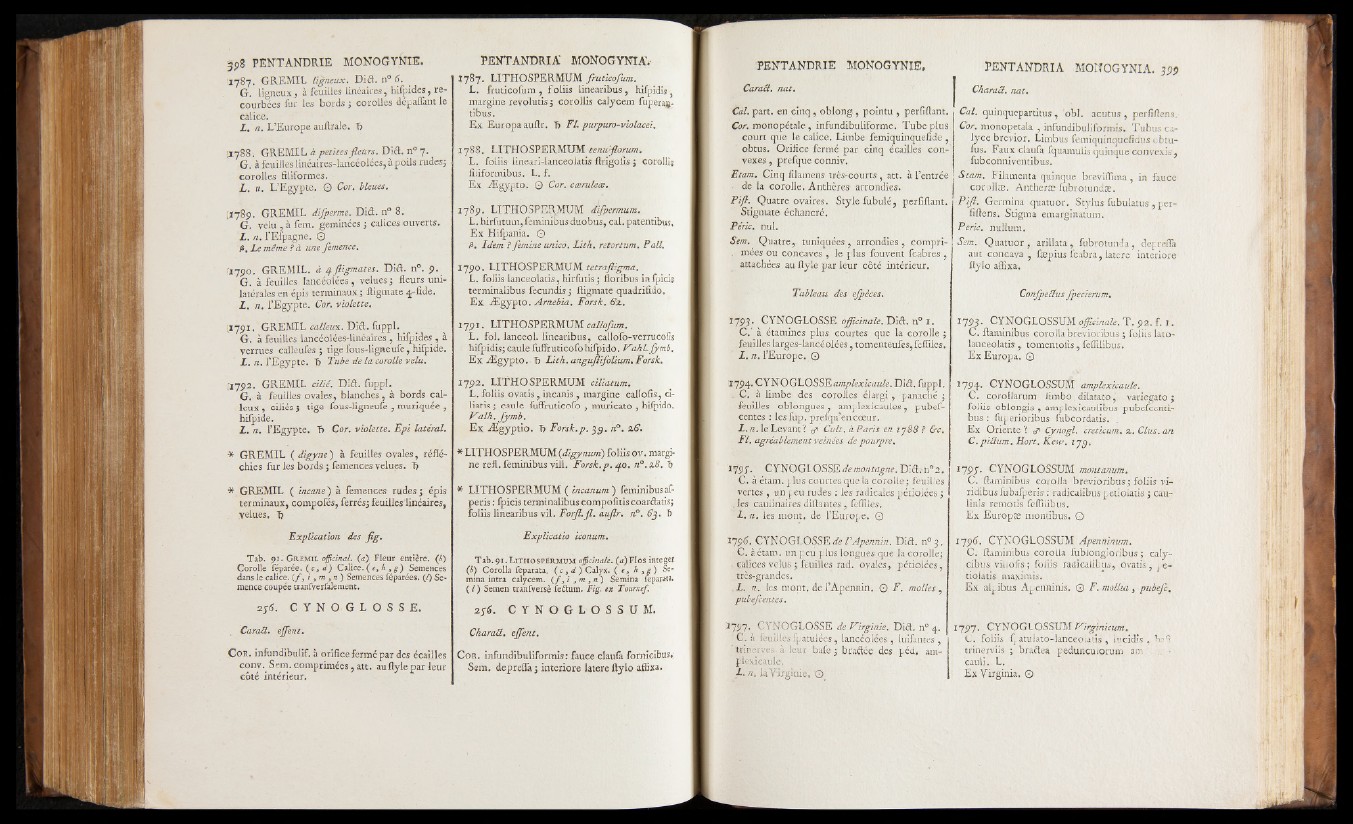 398 PENTANDRIE MONOGYNIE.
1787. GREMIL ligneux. Dict. n° 6.
G. ligneux, à feuilles linéaires, hispides, re-
courbées sur les bords ; corolles dépassant le
calice.
L. n. L'Europe australe. ♄
1788. GREMIL à petites fleurs. Dict. n° 7.
G. à feuilles linéaires-lancéolées, à poils rudes;
corolles filiformes.
L. n. L'Egypte. ☉ Cor. bleues.
1789. GREMIL disperme. Dict. n° 8.
G. velu, à sem. geminées ; calices ouverts.
L. n. l'Espagne. ☉
β. Le même ? à une semence.
1790. GREMIL. à 4 stigmates. Dict. n°. 9.
G. à feuilles lancéolées, velues ; fleurs uni-
latérales en épis terminaux ; stigmate 4-fide.
L. n. l'Egypte. Cor. violette.
1791. GREMIL calleux. Dict. suppl.
G. à feuilles lancéolées-linéaires, hispides, à
verrues calleuses ; tige sous-ligneuse, hispide.
L. n. l'Egypte. ♄ Tube de la corolle velu.
1792. GREMIL cilié. Dict. suppl.
G. à feuilles ovales, blanches, à bords cal-
leux, ciliés ; tige sous-ligneuse, muriquée,
hispide.
L. n. l'Egypte. ♄ Cor. violette. Epi latéral.
* GREMIL ( digyne ) à feuilles ovales, réflé-
chies sur les bords ; semences velues. ♄
* GREMIL ( incane ) à semences rudes ; épis
terminaux, composés, serrés; feuilles linéaires,
velues. ♄
Explication des fig.
Tab. 91. GREMIL officinal. (a) Fleur entière. (b)
Corolle séparée. (c, d) Calice. (e, h, g) Semences
dans le calice. (f, i, m, n) Semences séparées. (l) Se-
mence coupée transversalement.
256. CYNOGLOSSE.
Caract. essent.
COR. infundibulif. à orifice fermé par des écailles
conv. Sem. comprimées, att. au style par leur
côté intérieur.
PENTANDRIA MONOGYNIA.
1787. LITHOSPERMUM fruticosum.
L. fruticosum, foliis linearibus, hispidis,
margine revolutis ; corollis calycem superan-
tibus.
Ex Europa austr. ♄ Fl. purpuro-violacei.
1788. LITHOSPERMUM tenuiflorum.
L. foliis lineari-lanceolatis strigosis ; corollis
filiformibus. L. f.
Ex Ægypto. ☉ Cor. cæruleæ.
1789. LITHOSPERMUM dispermum.
L. hirsutum, seminibus duobus, cal. patentibus.
Ex Hispania. ☉
β. Idem ? semine unico. Lith. retortum. Pall.
1790. LITHOSPERMUM tetrastigma.
L. foliis lanceolatis, hirsutis ; floribus in spicis
terminalibus secundis ; stigmate quadrifido.
Ex Ægypto. Arnebia. Forsk. 62.
1791. LITHOSPERMUM callosum.
L. fol. lanceol. linearibus, calloso-verrucosis
hispidis; caule suffruticoso hispido. Vahl. symb.
Ex Ægypto. ♄ Lith. angustifolium. Forsk.
1792. LITHOSPERMUM ciliatum.
L. foliis ovatis, incanis, margine callosis, ci-
liatis ; caule suffruticoso, muricato, hispido.
Valh. symb.
Ex Ægyptio. ♄ Forsk. p. 39. n°. 26.
* LITHOSPERMUM (digynum) foliis ov. margi-
ne refl. seminibus vill. Forsk. p. 40. n°. 28. ♄
* LITHOSPERMUM ( incanum ) seminibus as-
peris : spicis terminalibus compositis coarctatis;
foliis linearibus vil. Forst. fl. austr. n°. 63. ♄
Explicatio iconum.
Tab. 91. LITHOSPERMUM officinale. (a) Flos integer
(b) Corolla separata. (c, d) Calyx. (e, h, g) Se-
mina intra calycem. (f, i, m, n) Semina separata.
(l) Semen transversè sectum. Fig. ex Tournef.
256. CYNOGLOSSUM.
Charact. essent.
COR. infundibuliformis: fauce clausa fornicibus.
Sem. depressa ; interiore latere stylo affixa.
PENTANDRIE MONOGYNIE.
Caract. nat.
Cal. part. en cinq, oblong, pointu, persistant.
Cor. monopétale, infundibuliforme. Tube plus
court que le calice. Limbe semiquinquefide,
obtus. Orifice fermé par cinq écailles con-
vexes, presque conniv.
Etam. Cinq filamens très-courts, att. à l'entrée
de la corolle. Anthères arrondies.
Pist. Quatre ovaires. Style subulé, persistant.
Stigmate échancré.
Péric. nul.
Sem. Quatre, tuniquées, arrondies, compri-
mées ou concaves, le plus souvent scabres,
attachées au style par leur côté intérieur.
Tableau des espèces.
1793. CYNOGLOSSE officinale. Dict. n° 1.
C. à étamines plus courtes que la corolle ;
feuilles larges-lancéolées, tomenteuses, sessiles.
L. n. l'Europe. ☉
1794. CYNOGLOSSE amplexicaule. Dict. suppl.
C. à limbe des corolles élargi, panaché ;
feuilles oblongues, amplexicaules, pubes-
centes : les sup. presqu'en cœur.
L. n. le Levant ? ♂ Cult. à Paris en 1788 ? &c.
Fl. agréablement veinées de pourpre.
1795. CYNOGLOSSE de montagne. Dict. n° 2.
C. à étam. plus courtes que la corolle ; feuilles
vertes, un peu rudes : les radicales pétiolées ;
les caulinaires distantes, sessiles.
L. n. les mont. de l'Europe. ☉
1796. CYNOGLOSSE de l'Apennin. Dict. n° 3.
C. à étam. un peu plus longues que la corolle;
calices velus ; feuilles rad. ovales, pétiolées,
très-grandes.
L. n. les mont. de l'Apennin. ☉ F. molles,
pubescentes.
1797. CYNOGLOSSE de Virginie. Dict. n° 4.
C. à feuilles spatulées, lancéolées, luisantes,
trinerves à leur base ; bractée des péd. am-
plexicaule.
L. n. la Virginie. ☉
PENTANDRIA MONOGYNIA. 399
Charact. nat.
Cal. quinquepartitus, obl. acutus, persistens.
Cor. monopetala, infundibuliformis. Tubus ca-
lyce brevior. Limbus semiquinquefidus obtu-
sus. Faux clausa squamulis quinque convexis,
subconniventibus.
Stam. Filamenta quinque brevissima, in fauce
corollæ. Antheræ subrotundæ.
Pist. Germina quatuor. Stylus subulatus, per-
sistens. Stigma emarginatum.
Peric. nullum.
Sem. Quatuor, arillata, subrotunda, depressa
aut concava, sæpius scabra, latere interiore
stylo affixa.
Conspectus specierum.
1793. CYNOGLOSSUM officinale. T. 92. f. 1.
C. staminibus corolla brevioribus ; foliis lato-
lanceolatis, tomentosis, sessilibus.
Ex Europa. ☉
1794. CYNOGLOSSUM amplexicaule.
C. corollarum limbo dilatato, variegato ;
foliis oblongis, amplexicaulibus pubescenti-
bus : superioribus subcordatis.
Ex Oriente ? ♂ Cynogl. creticum. 2. Clus. an
C. pictum. Hort. Kew. 179.
1795. CYNOGLOSSUM montanum.
C. staminibus corolla brevioribus ; foliis vi-
ridibus subasperis : radicalibus petiolatis ; cau-
linis remotis sessilibus.
Ex Europæ montibus. ☉
1796. CYNOGLOSSUM Apenninum.
C. staminibus corolla sublongioribus ; caly-
cibus villosis ; foliis radicalibus, ovatis, pe-
tiolatis maximis.
Ex alpibus Apenninis. ☉ F. mollia, pubesc.
1797. CYNOGLOSSUM Virginicum.
C. foliis spatulato-lanceolatis, lucidis,
trinerviis ; bractea pedunculorum
cauli. L.
Ex Virginia. ☉